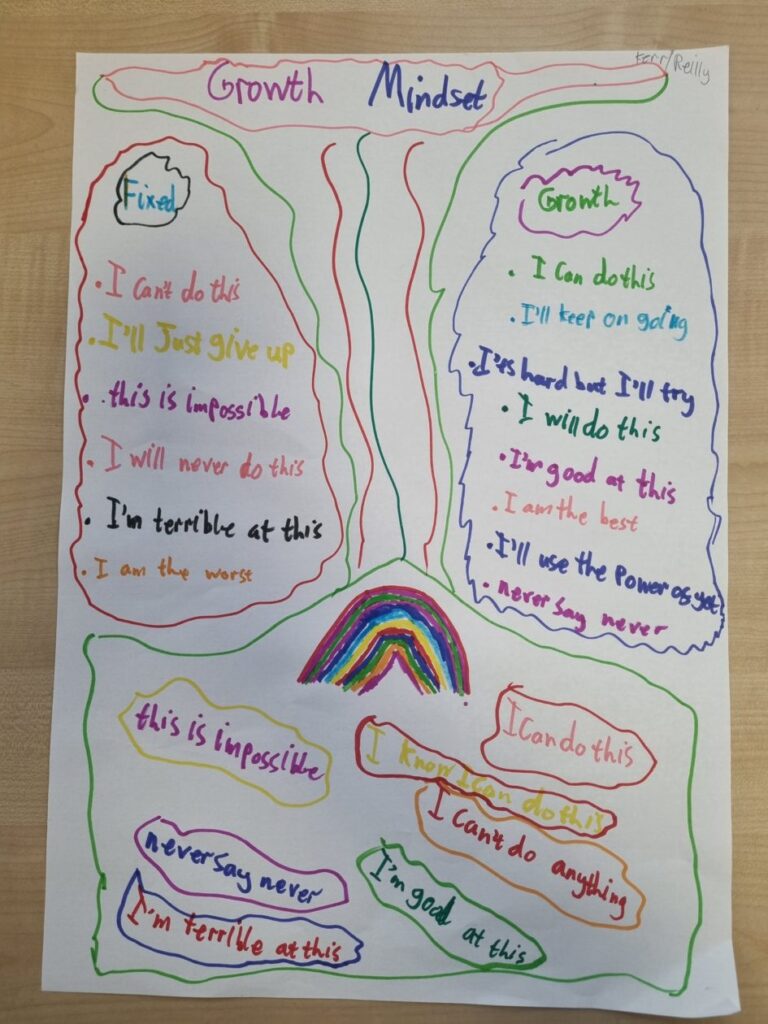 Kerr/Reilly
Growth Mindset
Fixed
• I can't do this
• I'll Just give up
• this is impossible
• I will never do this
• I'm terrible at this
• I am the worst
Growth
• I can do this
• I'll keep on going
• I'ts hard but I'll try
• I will do this
• I'm good at this
• I am the best
• I'll use the power of yet
• never say never
this is impossible
I can do this
I know I can do this
I can't do anything
never say never
I'm good at this
I'm terrible at this